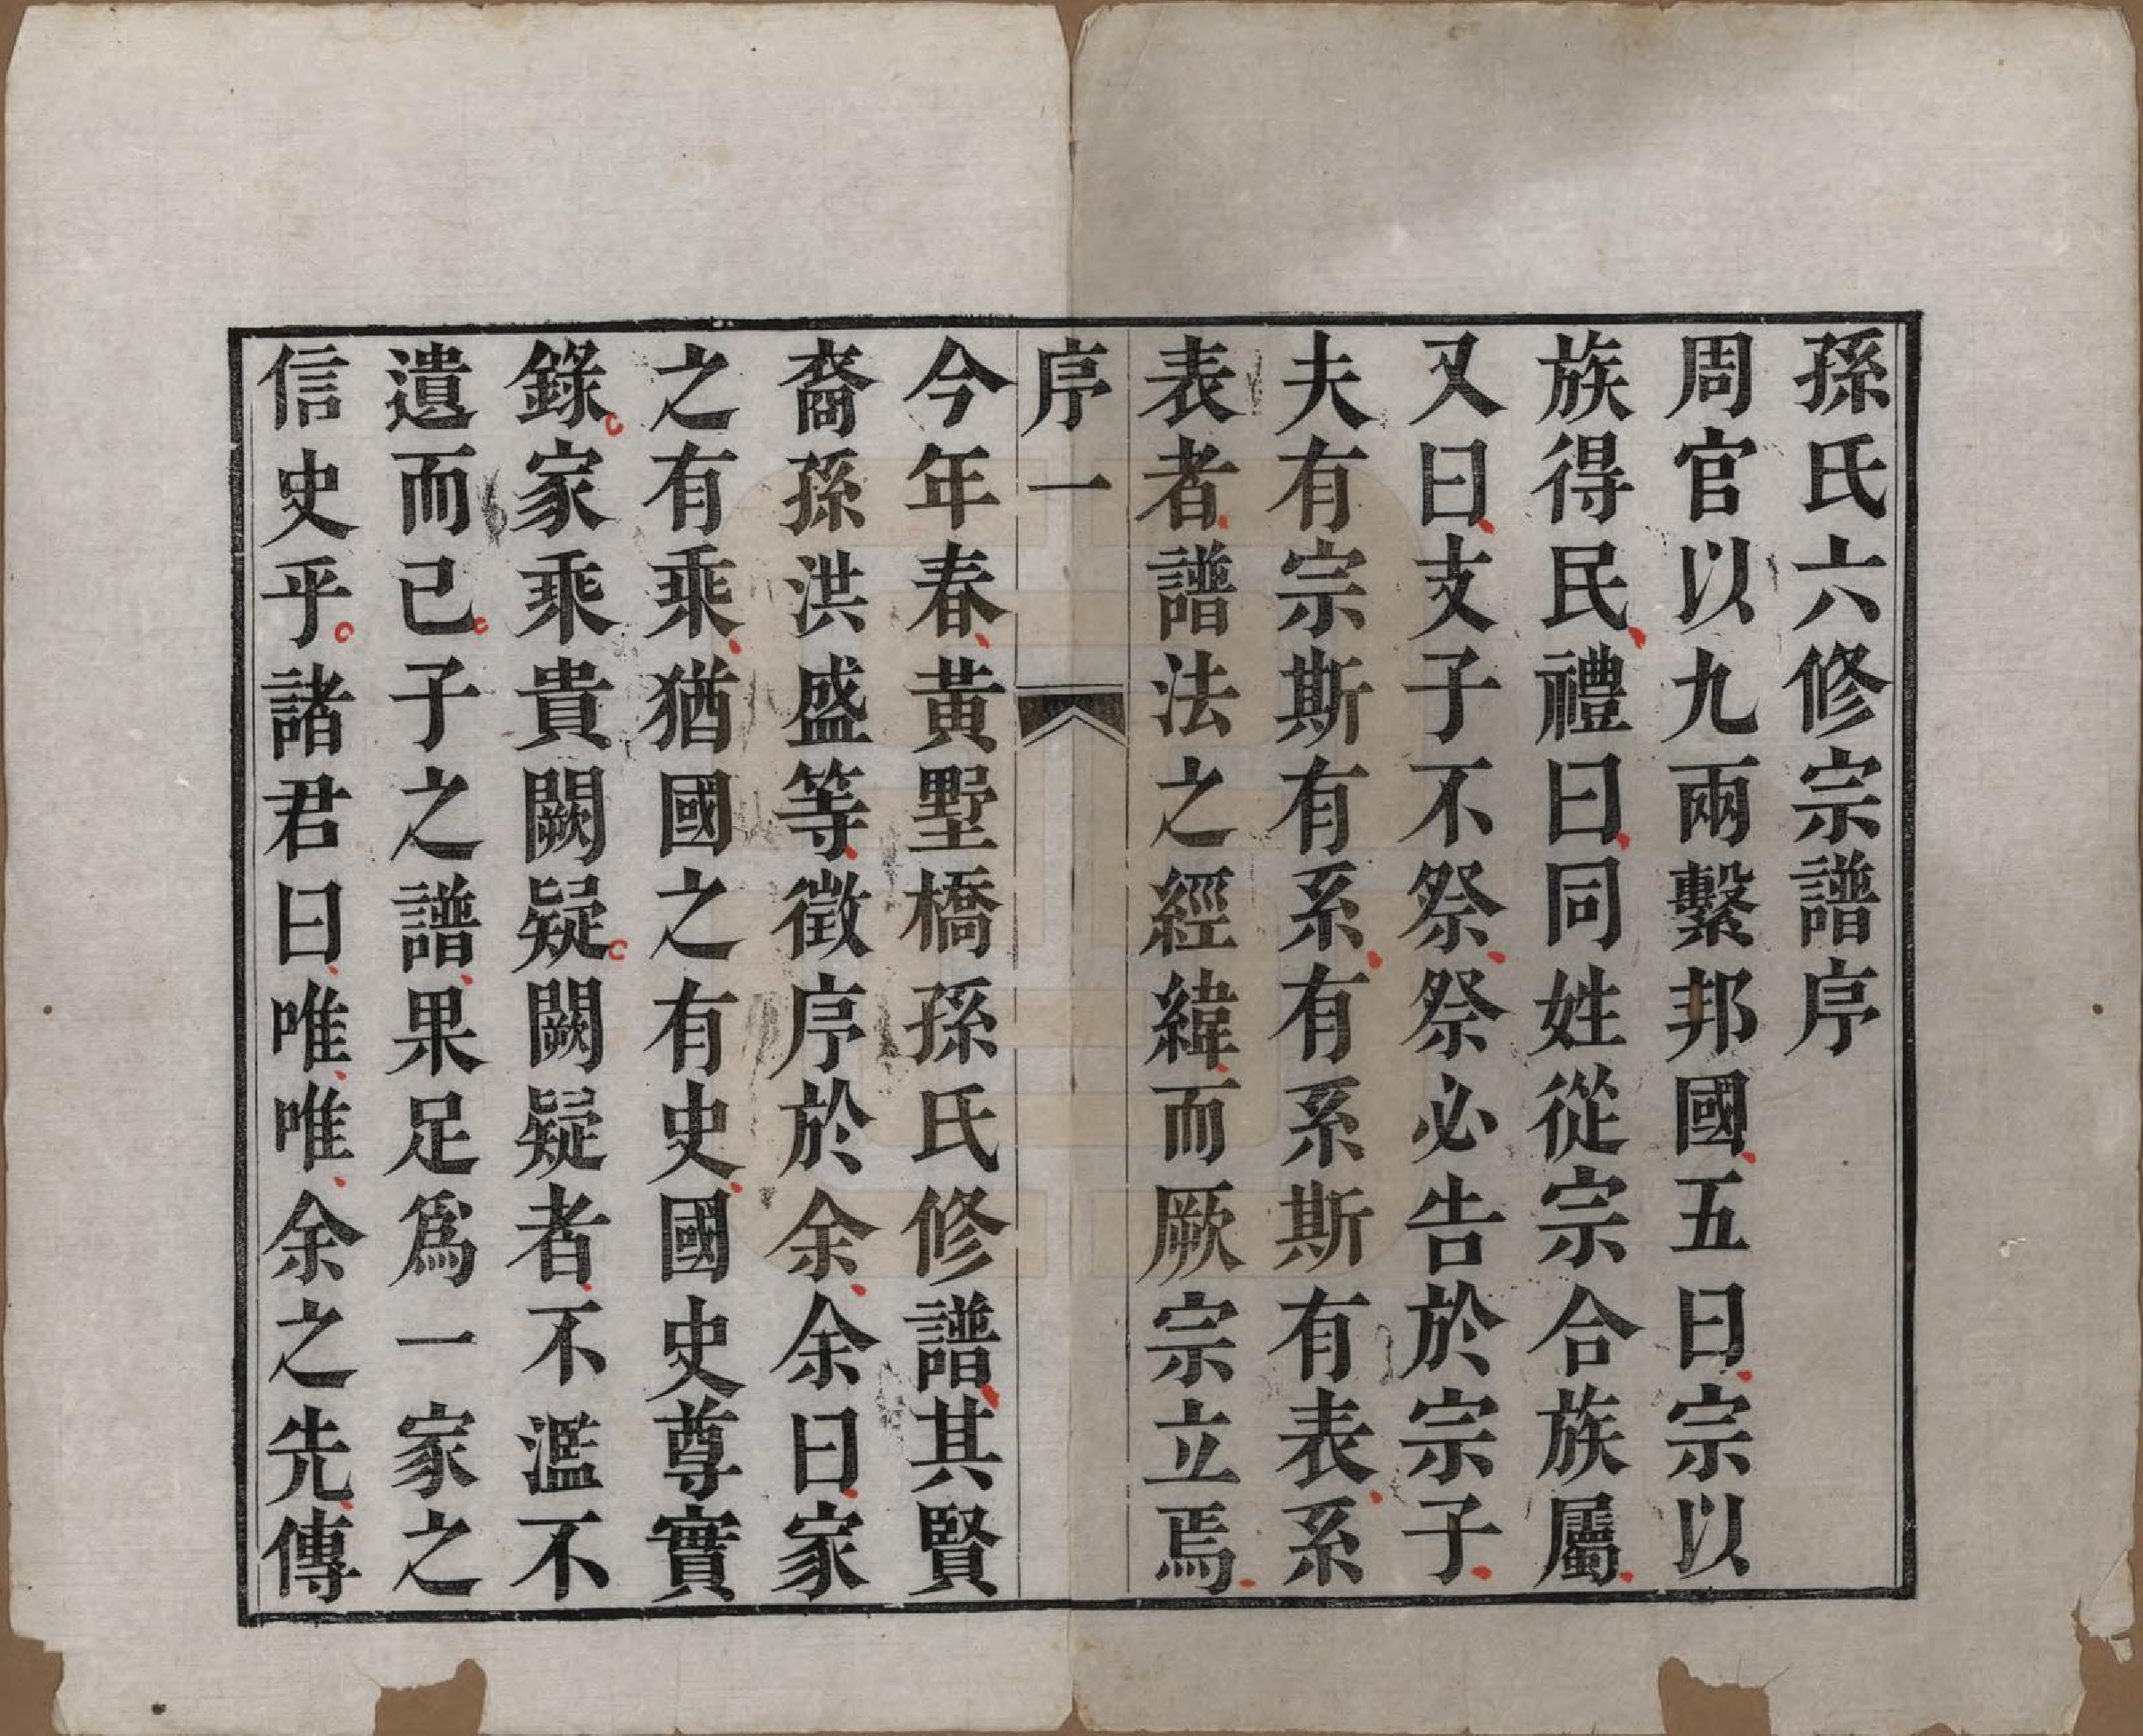 孫氏六修宗譜序
周官以九兩繫邦國五曰宗以
族得民禮曰同姓從宗合族屬
又曰支子不祭祭必告於宗子
夫有宗斯有系有系斯有表系
表者譜法之經緯而厥宗立焉
序一
今年春黃墅橋孫氏修譜其賢
裔孫洪盛等徵序於余余曰家
之有乘猶國之有史國史尊實
錄家乘貴闕疑闕疑者不濫不
遺而已子之譜果足爲一家之
信史乎諸君曰唯唯余之先傳